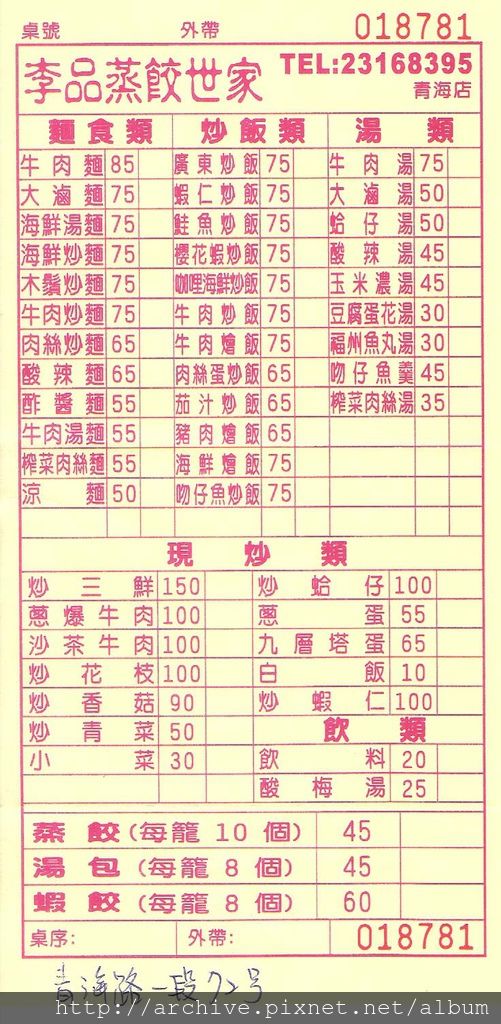 桌號 外帶 018781
李品蒸餃世家 TEL:23168395
青海店
麵食類 炒飯類 湯類
牛肉麵 85 廣東炒飯 75 牛肉湯 75
大滷麵 75 蝦仁炒飯 75 大滷湯 50
海鮮湯麵 75 鮭魚炒飯 75 蛤仔湯 50
海鮮炒麵 75 櫻花蝦炒飯 75 酸辣湯 45
木鬚炒麵 75 咖哩海鮮炒飯 75 玉米濃湯 45
牛肉炒麵 75 牛肉炒飯 75 豆腐蛋花湯 30
肉絲炒麵 65 牛肉燴飯 75 福州魚丸湯 30
酸辣麵 65 肉絲蛋炒飯 65 吻仔魚羹 45
酢醬麵 55 茄汁炒飯 65 榨菜肉絲湯 35
牛肉湯麵 55 豬肉燴飯 65
榨菜肉絲麵 55 海鮮燴飯 75
涼麵 50 吻仔魚炒飯 75
現炒類
炒三鮮 150 炒蛤仔 100
蔥爆牛肉 100 蔥蛋 55
沙茶牛肉 100 九層塔蛋 65
炒花枝 100 白飯 10
炒香菇 90 炒蝦仁 100
炒青菜 50 飲類
小菜 30 飲料 20
酸梅湯 25
蒸餃(每籠 10 個) 45
湯包(每籠 8 個) 45
蝦餃(每籠 8 個) 60
桌序: 外帶: 018781
青海路一段72号
http://archive.pixnet.net/album